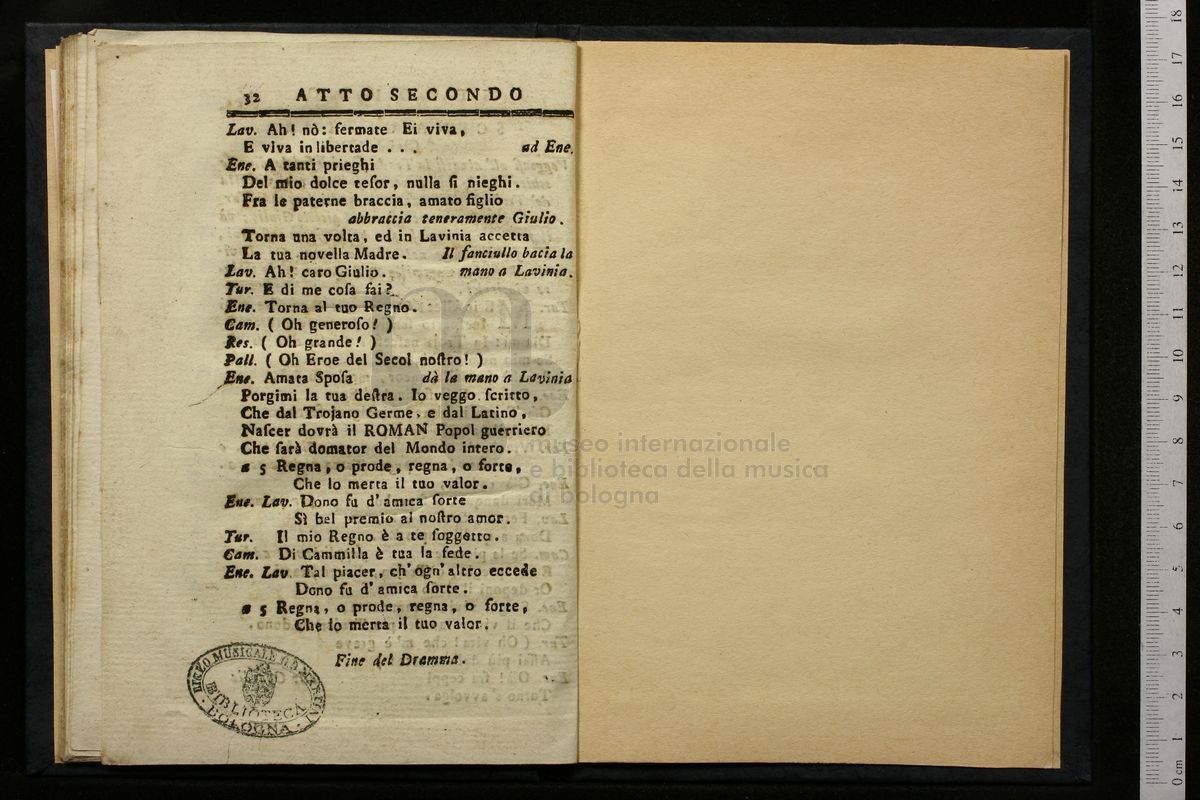 32 ATTO SECONDO
Lav. Ah! nò: fermate Ei viva,
E viva in libertade . . . ad Ene.
Ene. A tanti prieghi
Del mio dolce tesor, nulla si nieghi.
Fra le paterne braccia, amato figlio
abbraccia teneramente Giulio.
Torna una volta, ed in Lavinia accetta
La tua novella Madre. Il fanciullo bacia la
Lav. Ah! caro Giulio. mano a Lavinia.
Tur. E di me cosa fai?
Ene. Torna al tuo Regno.
Cam. ( Oh generoso! )
Res. ( Oh grande! )
Pall. ( Oh Eroe del Secol nostro! )
Ene. Amata Sposa dà la mano a Lavinia
Porgimi la tua destra. Io veggo scritto,
Che dal Trojano Germe, e dal Latino,
Nascer dovrà il ROMAN Popol guerriero
Che sarà domator del Mondo intero.
a 5 Regna, o prode, regna, o forte,
Che lo merta il tuo valor.
Ene. Lav. Dono fu d' amica sorte
Sì bel premio al nostro amor.
Tur. Il mio Regno è a te soggetto.
Cam. Di Cammilla è tua la fede.
Ene. Lav. Tal piacer, ch' ogn' altro eccede
Dono fu d' amica sorte.
a 5 Regna, o prode, regna, o forte,
Che lo merta il tuo valor.
Fine del Dramma.
LICEO MUSICALE G.B. MARTINI
BIBLIOTECA
BOLOGNA
museo internazionale
e biblioteca della musica
di bologna
0 cm 1 2 3 4 5 6 7 8 9 10 11 12 13 14 15 16 17 18